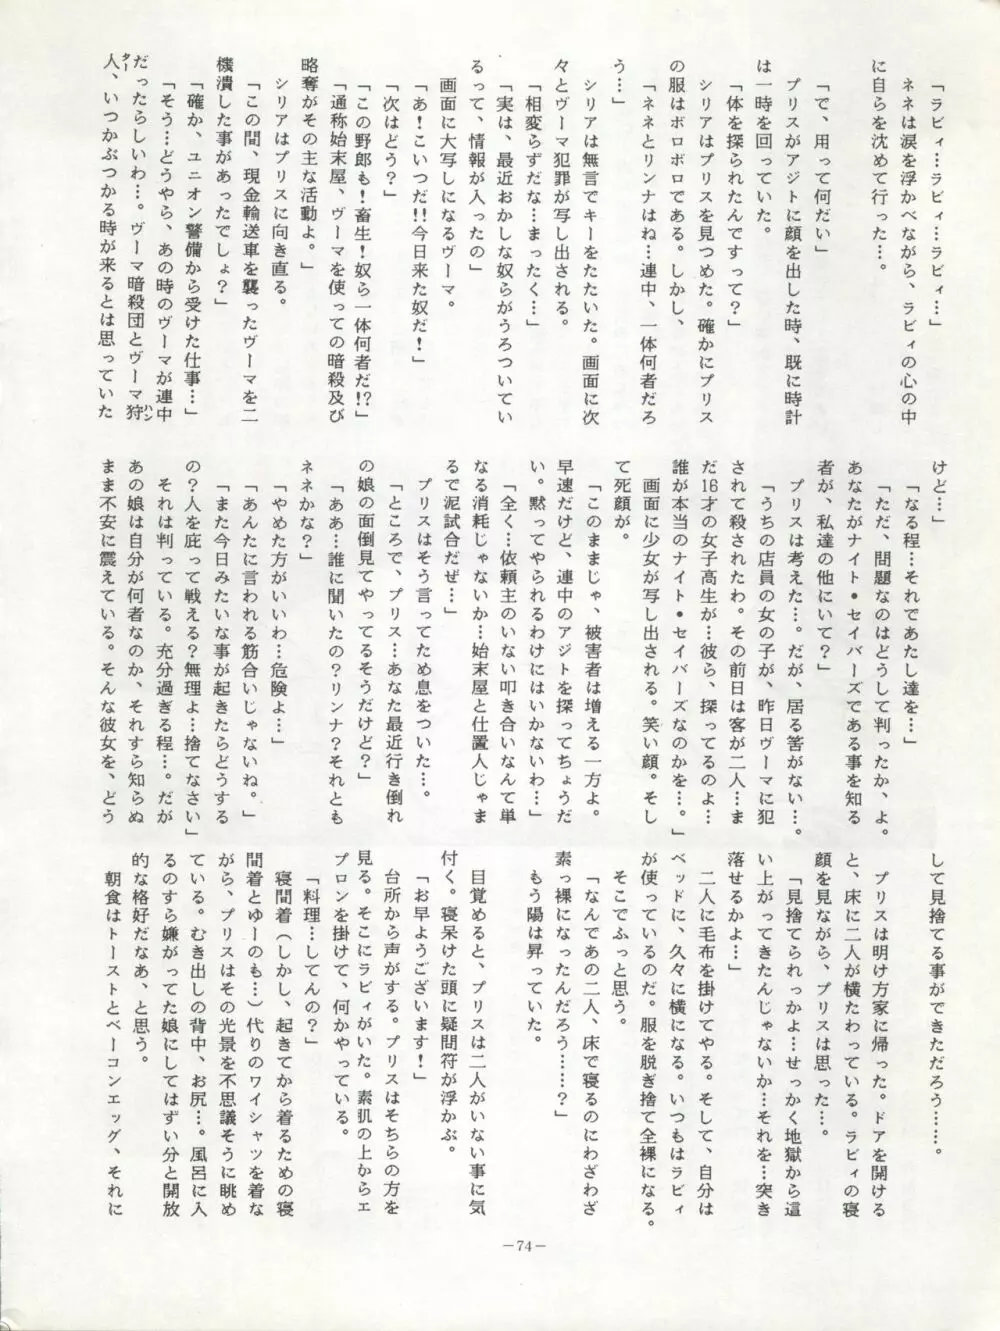 「ラビィ…ラビィ…ラビィ…」
ネネは涙を浮かべながら、ラビィの心の中
に自らを沈めて行った…。
「で、用って何だい」
プリスがアジトに顔を出した時、既に時計
は一時を回っていた。
「体を探られたんですって？」
シリアはプリスを見つめた。確かにプリス
の服はボロボロである。しかし、
「ネネとリンナはね…連中、一体何者だろ
う…」
シリアは無言でキーをたたいた。画面に次
々とヴーマ犯罪が写し出される。
「相変らずだな…まったく…」
「実は、最近おかしな奴らがうろついてい
るって、情報が入ったの」
画面に大写しになるヴーマ。
「あ！こいつだ!!今日来た奴だ！」
「次はどう？」
「この野郎も！畜生！奴ら一体何者だ!?」
「通称始末屋、ヴーマを使っての暗殺及び
略奪がその主な活動よ。」
シリアはプリスに向き直る。
「この間、現金輸送車を襲ったヴーマを二
機潰した事があったでしょ？」
「確か、ユニオン警備から受けた仕事…」
「そう…どうやら、あの時のヴーマが連中
だったらしいわ…。ヴーマ暗殺団とヴーマ狩ハン
人ター、いつかぶつかる時が来るとは思っていた
けど…」
「なる程…それであたし達を…」
「ただ、問題なのはどうして判ったか、よ。
あなたがナイト・セイバーズである事を知る
者が、私達の他にいて？」
プリスは考えた…。だが、居る筈がない…。
「うちの店員の女の子が、昨日ヴーマに犯
されて殺されたわ。その前日は客が二人…ま
だ16才の女子高生が…彼ら、探ってるのよ…
誰が本当のナイト・セイバーズなのかを…。」
画面に少女が写し出される。笑い顔。そし
て死顔が。
「このままじゃ、被害者は増える一方よ。
早速だけど、連中のアジトを探ってちょうだ
い。黙ってやられるわけにはいかないわ…」
「全く…依頼主のいない叩き合いなんて単
なる消耗じゃないか…始末屋と仕置人じゃま
るで泥試合だぜ…」
プリスはそう言ってため息をついた…。
「ところで、プリス…あなた最近行き倒れ
の娘の面倒見てやってるそうだけど？」
「ああ…誰に聞いたの？リンナ？それとも
ネネかな？」
「やめた方がいいわ…危険よ…」
「あんたに言われる筋合いじゃないね。」
「また今日みたいな事が起きたらどうする
の？人を庇って戦える？無理よ…捨てなさい」
それは判っている。充分過ぎる程…。だが
あの娘は自分が何者なのか、それすら知らぬ
まま不安に震えている。そんな彼女を、どう
して見捨てる事ができただろう……。
プリスは明け方家に帰った。ドアを開ける
と、床に二人が横たわっている。ラビィの寝
顔を見ながら、プリスは思った…。
「見捨てられっかよ…せっかく地獄から這
い上がってきたんじゃないか…それを…突き
落せるかよ…」
二人に毛布を掛けてやる。そして、自分は
ベッドに、久々に横になる。いつもはラビィ
が使っているのだ。服を脱ぎ捨て全裸になる。
そこでふっと思う。
「なんであの二人、床で寝るのにわざわざ
素っ裸になったんだろう……？」
もう陽は昇っていた。
目覚めると、プリスは二人がいない事に気
付く。寝呆けた頭に疑問符が浮かぶ。
「お早ようございます！」
台所から声がする。プリスはそちらの方を
見る。そこにラビィがいた。素肌の上からエ
プロンを掛けて、何かやっている。
「料理…してんの？」
寝間着（しかし、起きてから着るための寝
間着とゆーのも…）代りのワイシャツを着な
がら、プリスはその光景を不思議そうに眺め
ている。むき出しの背中、お尻…。風呂に入
るのすら嫌がってた娘にしてはずい分と開放
的な格好だなあ、と思う。
朝食はトーストとベーコンエッグ、それに
－74－